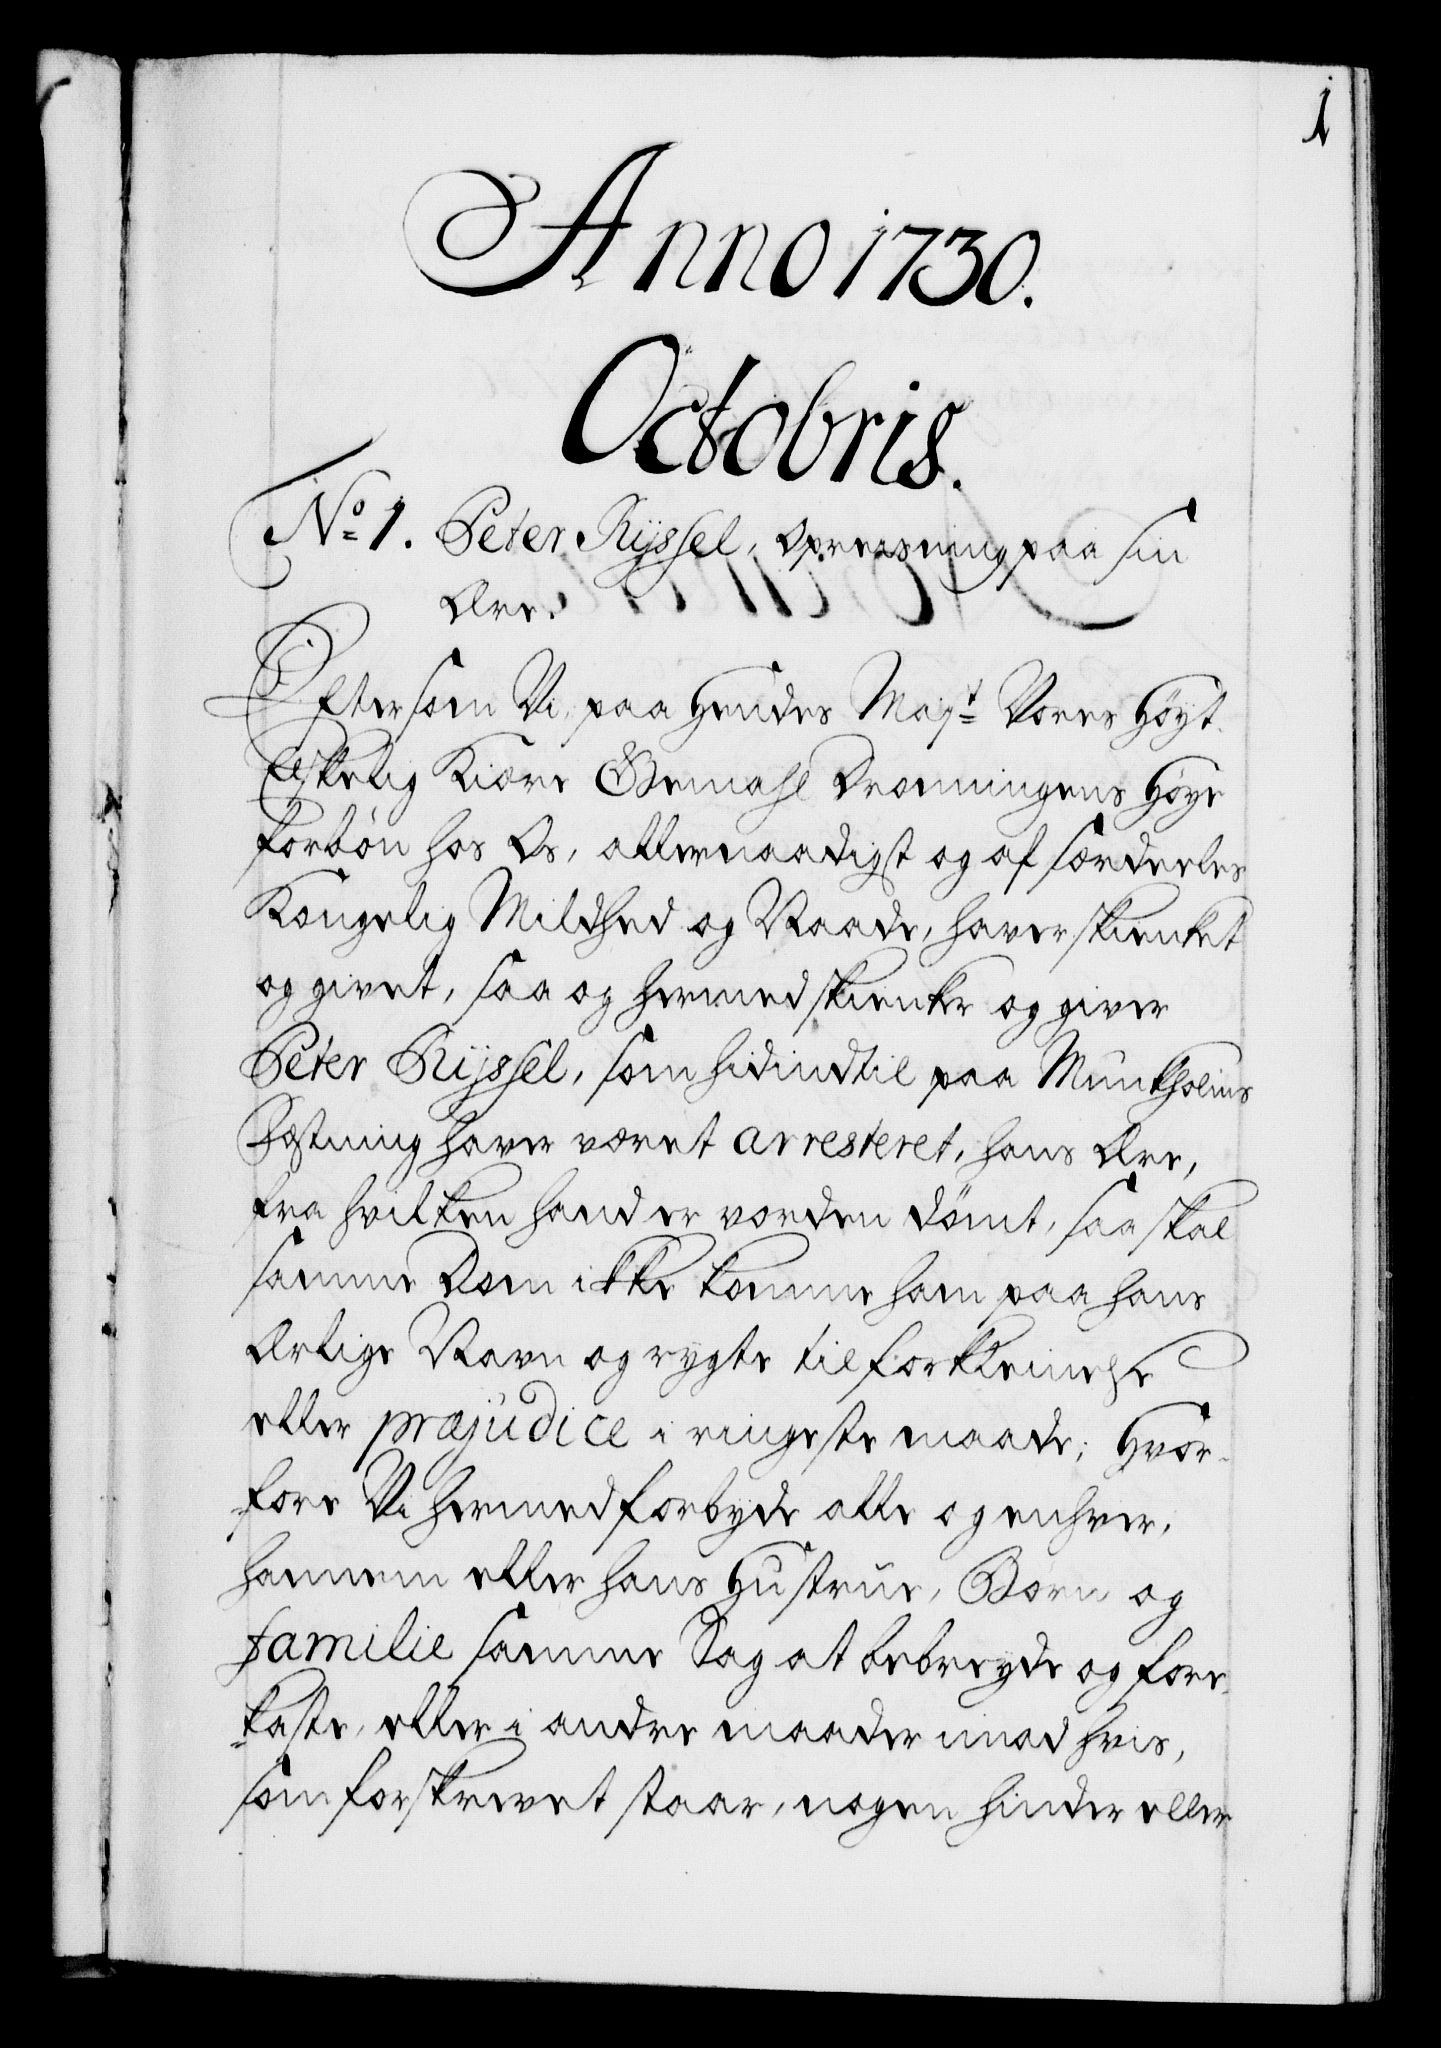 1
Anno 1730.
Octobris.
No 1. Peter Rÿssel, Opreisning paa sin
Ære.
Eftersom Vi, paa Hendes Majt Vores Høyt-
Elskelig Kiære Gemahl Dronningens Høye
forbøn hos Os, allernaadigst og af særdeeles
Kongelig Mildhed og Naade, haver skienket
og givet, saa og hermed skienke og giver
Peter Rÿssel, som hidindtil paa Munkholms
Fæstning haver været arresteret, hans Ære,
fra hvilken hand er vorden dømt, saa skal
samme Dom ikke komme ham paa hans
Ærlige Navn og rygte til forkleinelse
eller præjudice i ringeste maade; Hvor-
fore Vi hermed forbyde alle og enhver,
hannem eller hans Hustrue, Børn og
familie samme Sag at bebreyde og fore-
kaste, eller i andre maader imod hvis,
som forskrevet staar, nogen hinder eller